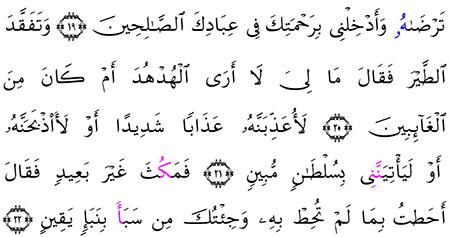 تَرْضَىٰهُ وَأَدْخِلْنِى بِرَحْمَتِكَ فِى عِبَادِكَ ٱلصَّـٰلِحِينَ ﴿١٩﴾ وَتَفَقَّدَ
ٱلطَّيْرَ فَقَالَ مَا لِىَ لَا أَرَى ٱلْهُدْهُدَ أَمْ كَانَ مِنَ
ٱلْغَآئِبِينَ ﴿٢٠﴾ لَأُعَذِّبَنَّهُۥ عَذَابًا شَدِيدًا أَوْ لَأَا۟ذْبَحَنَّهُۥ
أَوْ لَيَأْتِيَنَّنِى بِسُلْطَـٰنٍ مُّبِينٍ ﴿٢١﴾ فَمَكُثَ غَيْرَ بَعِيدٍ فَقَالَ
أَحَطتُ بِمَا لَمْ تُحِطْ بِهِۦ وَجِئْتُكَ مِن سَبَأَ بِنَبَإٍ يَقِينٍ ﴿٢٢﴾